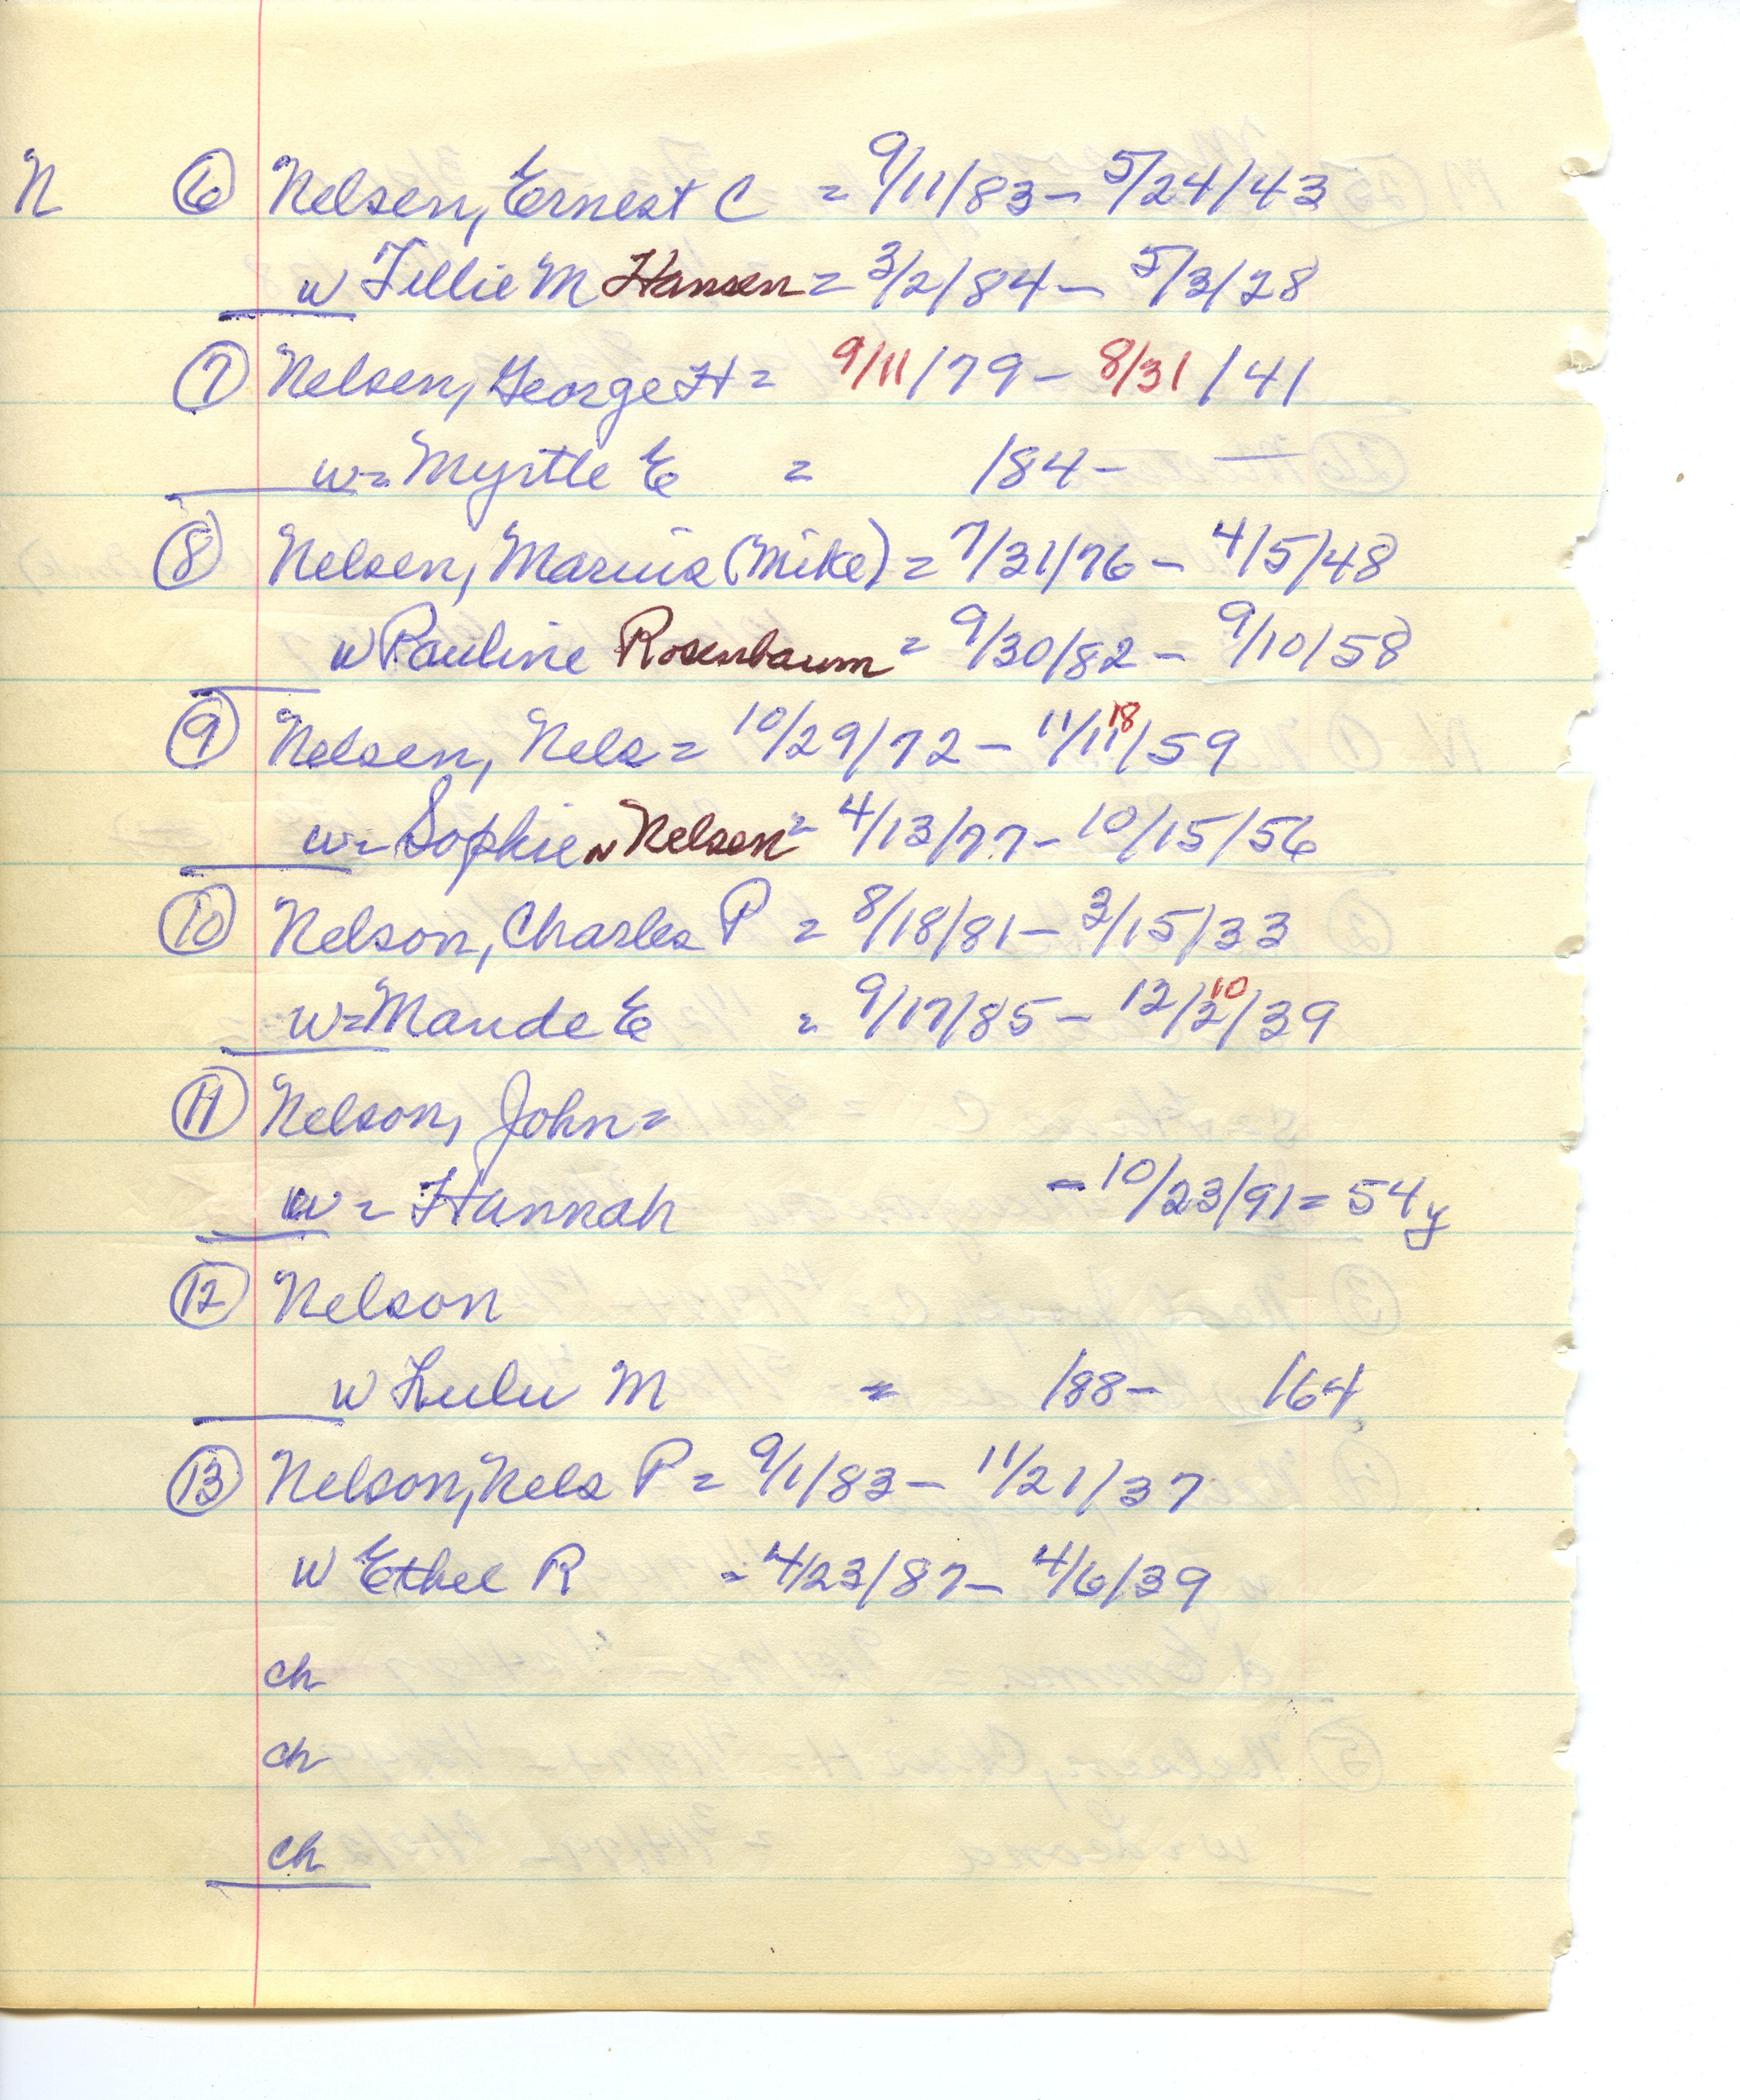 N ⑥ Nelsen, Ernest C = 9/11/83 - 5/24/43
w Tillie M Hansen = 3/2/84 - 5/3/28
⑦ Nelsen, George H = 9/11/79 - 8/31/41
w = Myrtle E = /84 - —
⑧ Nelsen, Marius (Mike) = 7/31/76 - 4/5/48
w Pauline Rosenbaum = 9/30/82 - 9/10/58
⑨ Nelsen, Nels = 10/29/72 - 11/11 18/59
w = Sophie N Nelsen = 4/13/77 - 10/15/56
⑩ Nelson, Charles P = 8/18/81 - 3/15/33
w = Maude E = 9/17/85 - 12/2 10/39
⑪ Nelson, John =
w = Hannah - 10/23/91 = 54y
⑫ Nelson
w Lulu M = /88 - /64
⑬ Nelson, Nels P = 9/1/83 - 11/21/37
w Ethel R = 4/23/87 - 4/6/39
ch
ch
ch